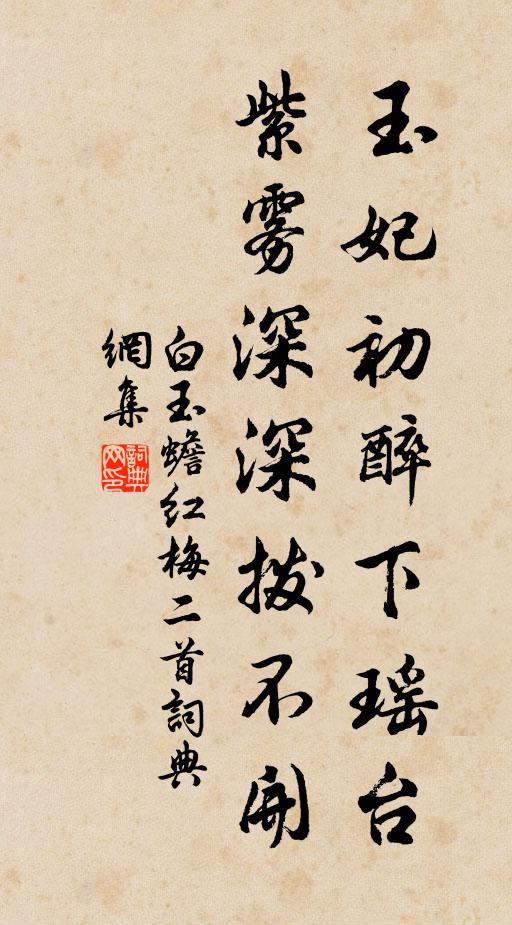 玉妃初醉下瑶台
紫雾深深拨不开
白玉蟾红梅二首詞典
網集
詞典
网印